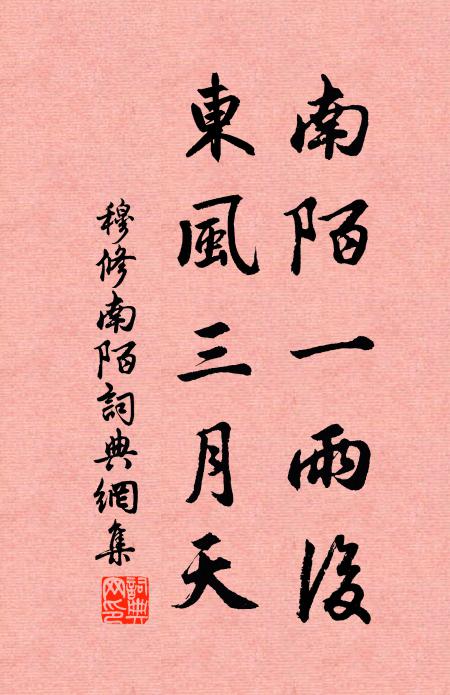 南陌一雨後
東風三月天
穆修南陌詞典網集
詞典網印